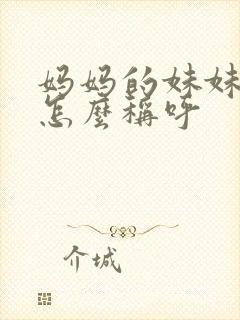 妈妈的妹妹
怎麼稱呼
介城